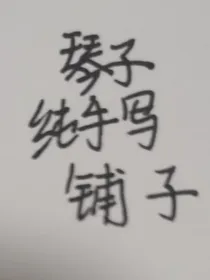 琴子
纯手写
铺子